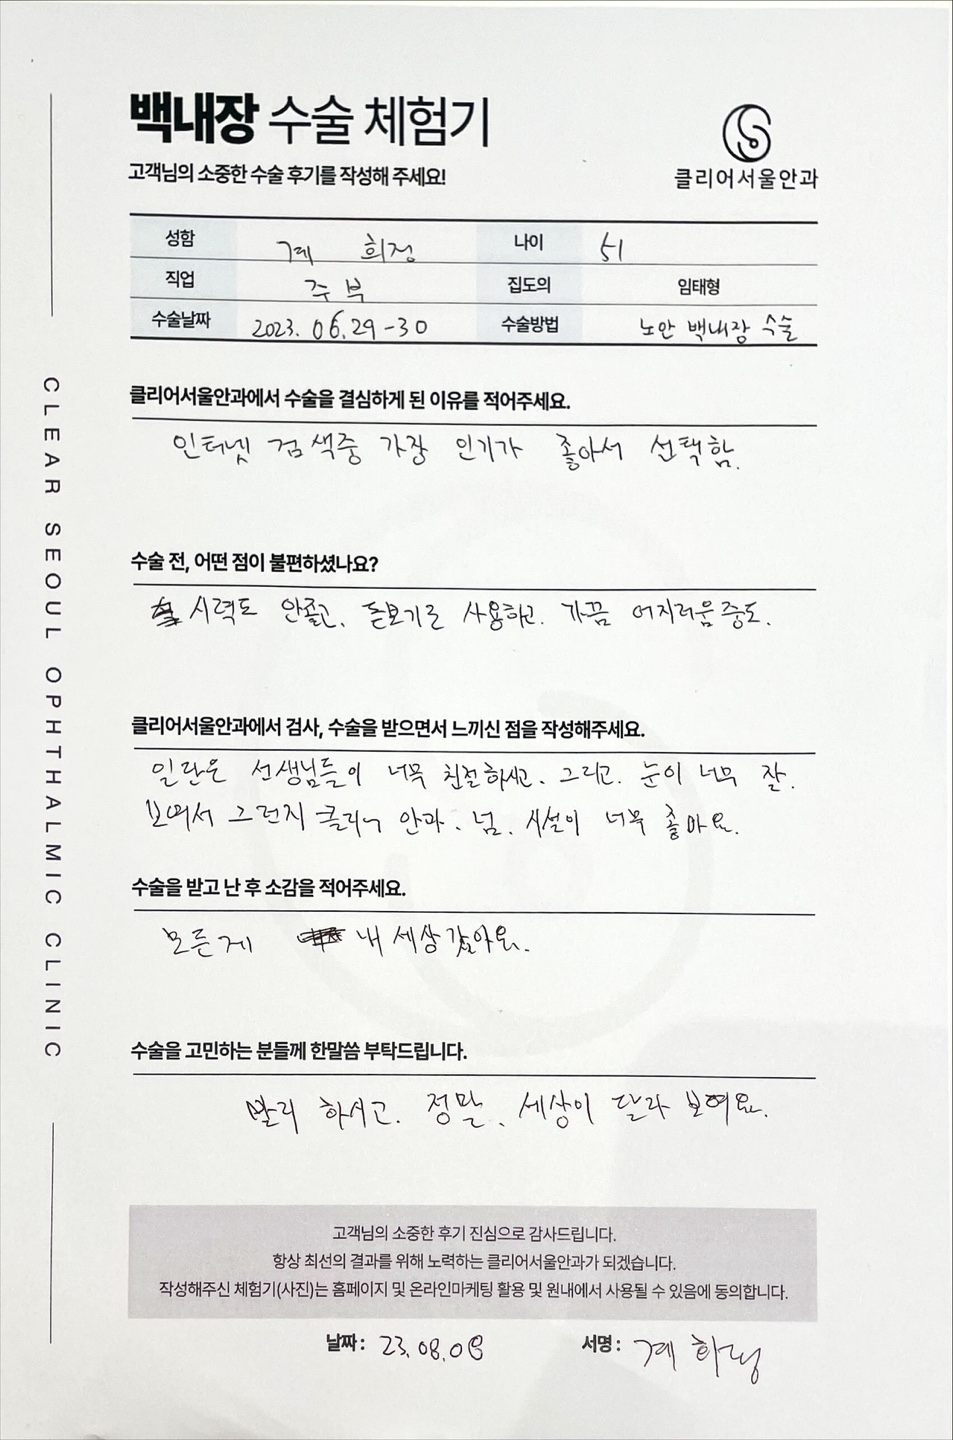 백내장 수술 체험기
고객님의 소중한 수술 후기를 작성해 주세요!
클리어서울안과
성함 계 희정 나이 51
직업 주부 집도의 임태형
수술날짜 2023. 06.29-30 수술방법 노안 백내장 수술
CLEAR SEOUL OPHTHALMIC CLINIC
클리어서울안과에서 수술을 결심하게 된 이유를 적어주세요.
인터넷 검색중 가장 인기가 좋아서 선택함.
수술 전, 어떤 점이 불편하셨나요?
시력도 안좋고. 돋보기로 사용하고. 가끔 어지러움증도.
클리어서울안과에서 검사, 수술을 받으면서 느끼신 점을 작성해주세요.
일단은 선생님들이 너무 친절하시고. 그리고. 눈이 너무 잘.
보여서 그런지 클리어 안과. 넘. 시설이 너무 좋아요.
수술을 받고 난 후 소감을 적어주세요.
모든게 내 세상 같아요.
수술을 고민하는 분들께 한말씀 부탁드립니다.
빨리 하시고. 정말. 세상이 달라 보여요.
고객님의 소중한 후기 진심으로 감사드립니다.
항상 최선의 결과를 위해 노력하는 클리어서울안과가 되겠습니다.
작성해주신 체험기(사진)는 홈페이지 및 온라인마케팅 활용 및 원내에서 사용될 수 있음에 동의합니다.
날짜 : 23.08.08 서명 : 계 희정